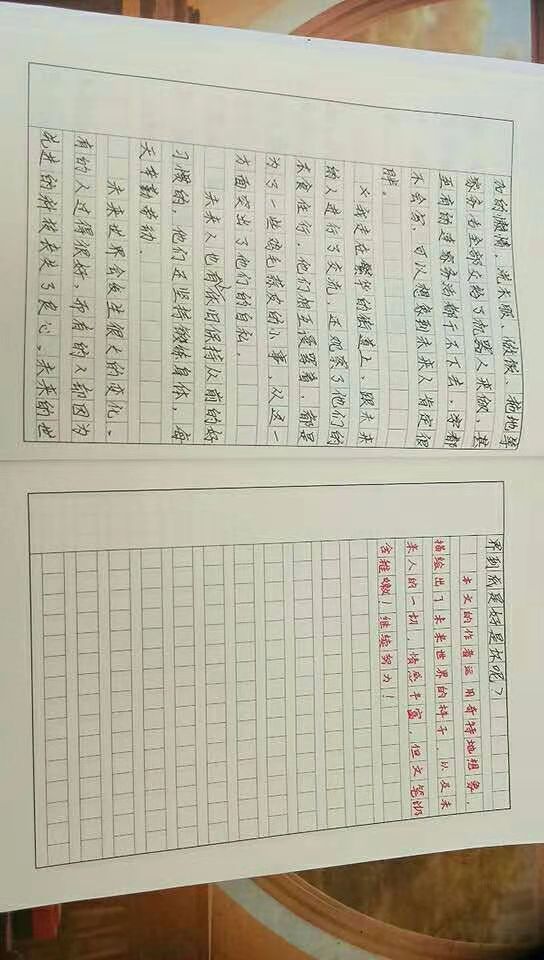 为的懒惰，洗衣服、做饭、拖地等
家务也全部交给了机器人来做，甚
至有的连家务活都干不下去，字都
不会写，可以想象到未来人肯定很
胖。
又我走在繁华的街道上，跟未来
的人进行了交流，还观察了他们的
衣食住行，他们相互谩骂着，都是
为了一些鸡毛蒜皮的小事，从这一
方面突出了他们的自私。
未来人也有依旧保持从前的好
习惯的，他们还坚持锻炼身体，每
天辛勤劳动。
未来世界会发生很大的变化。
有的人过得很好，而有的人却因为
先进的科技丧失了良心。未来的世
界到底是好是坏呢？
本文的作者运用奇特地想象，
描绘出了未来世界的样子，以及未
来人的一切，情感丰富，但文笔仍
含稚嫩！继续努力！